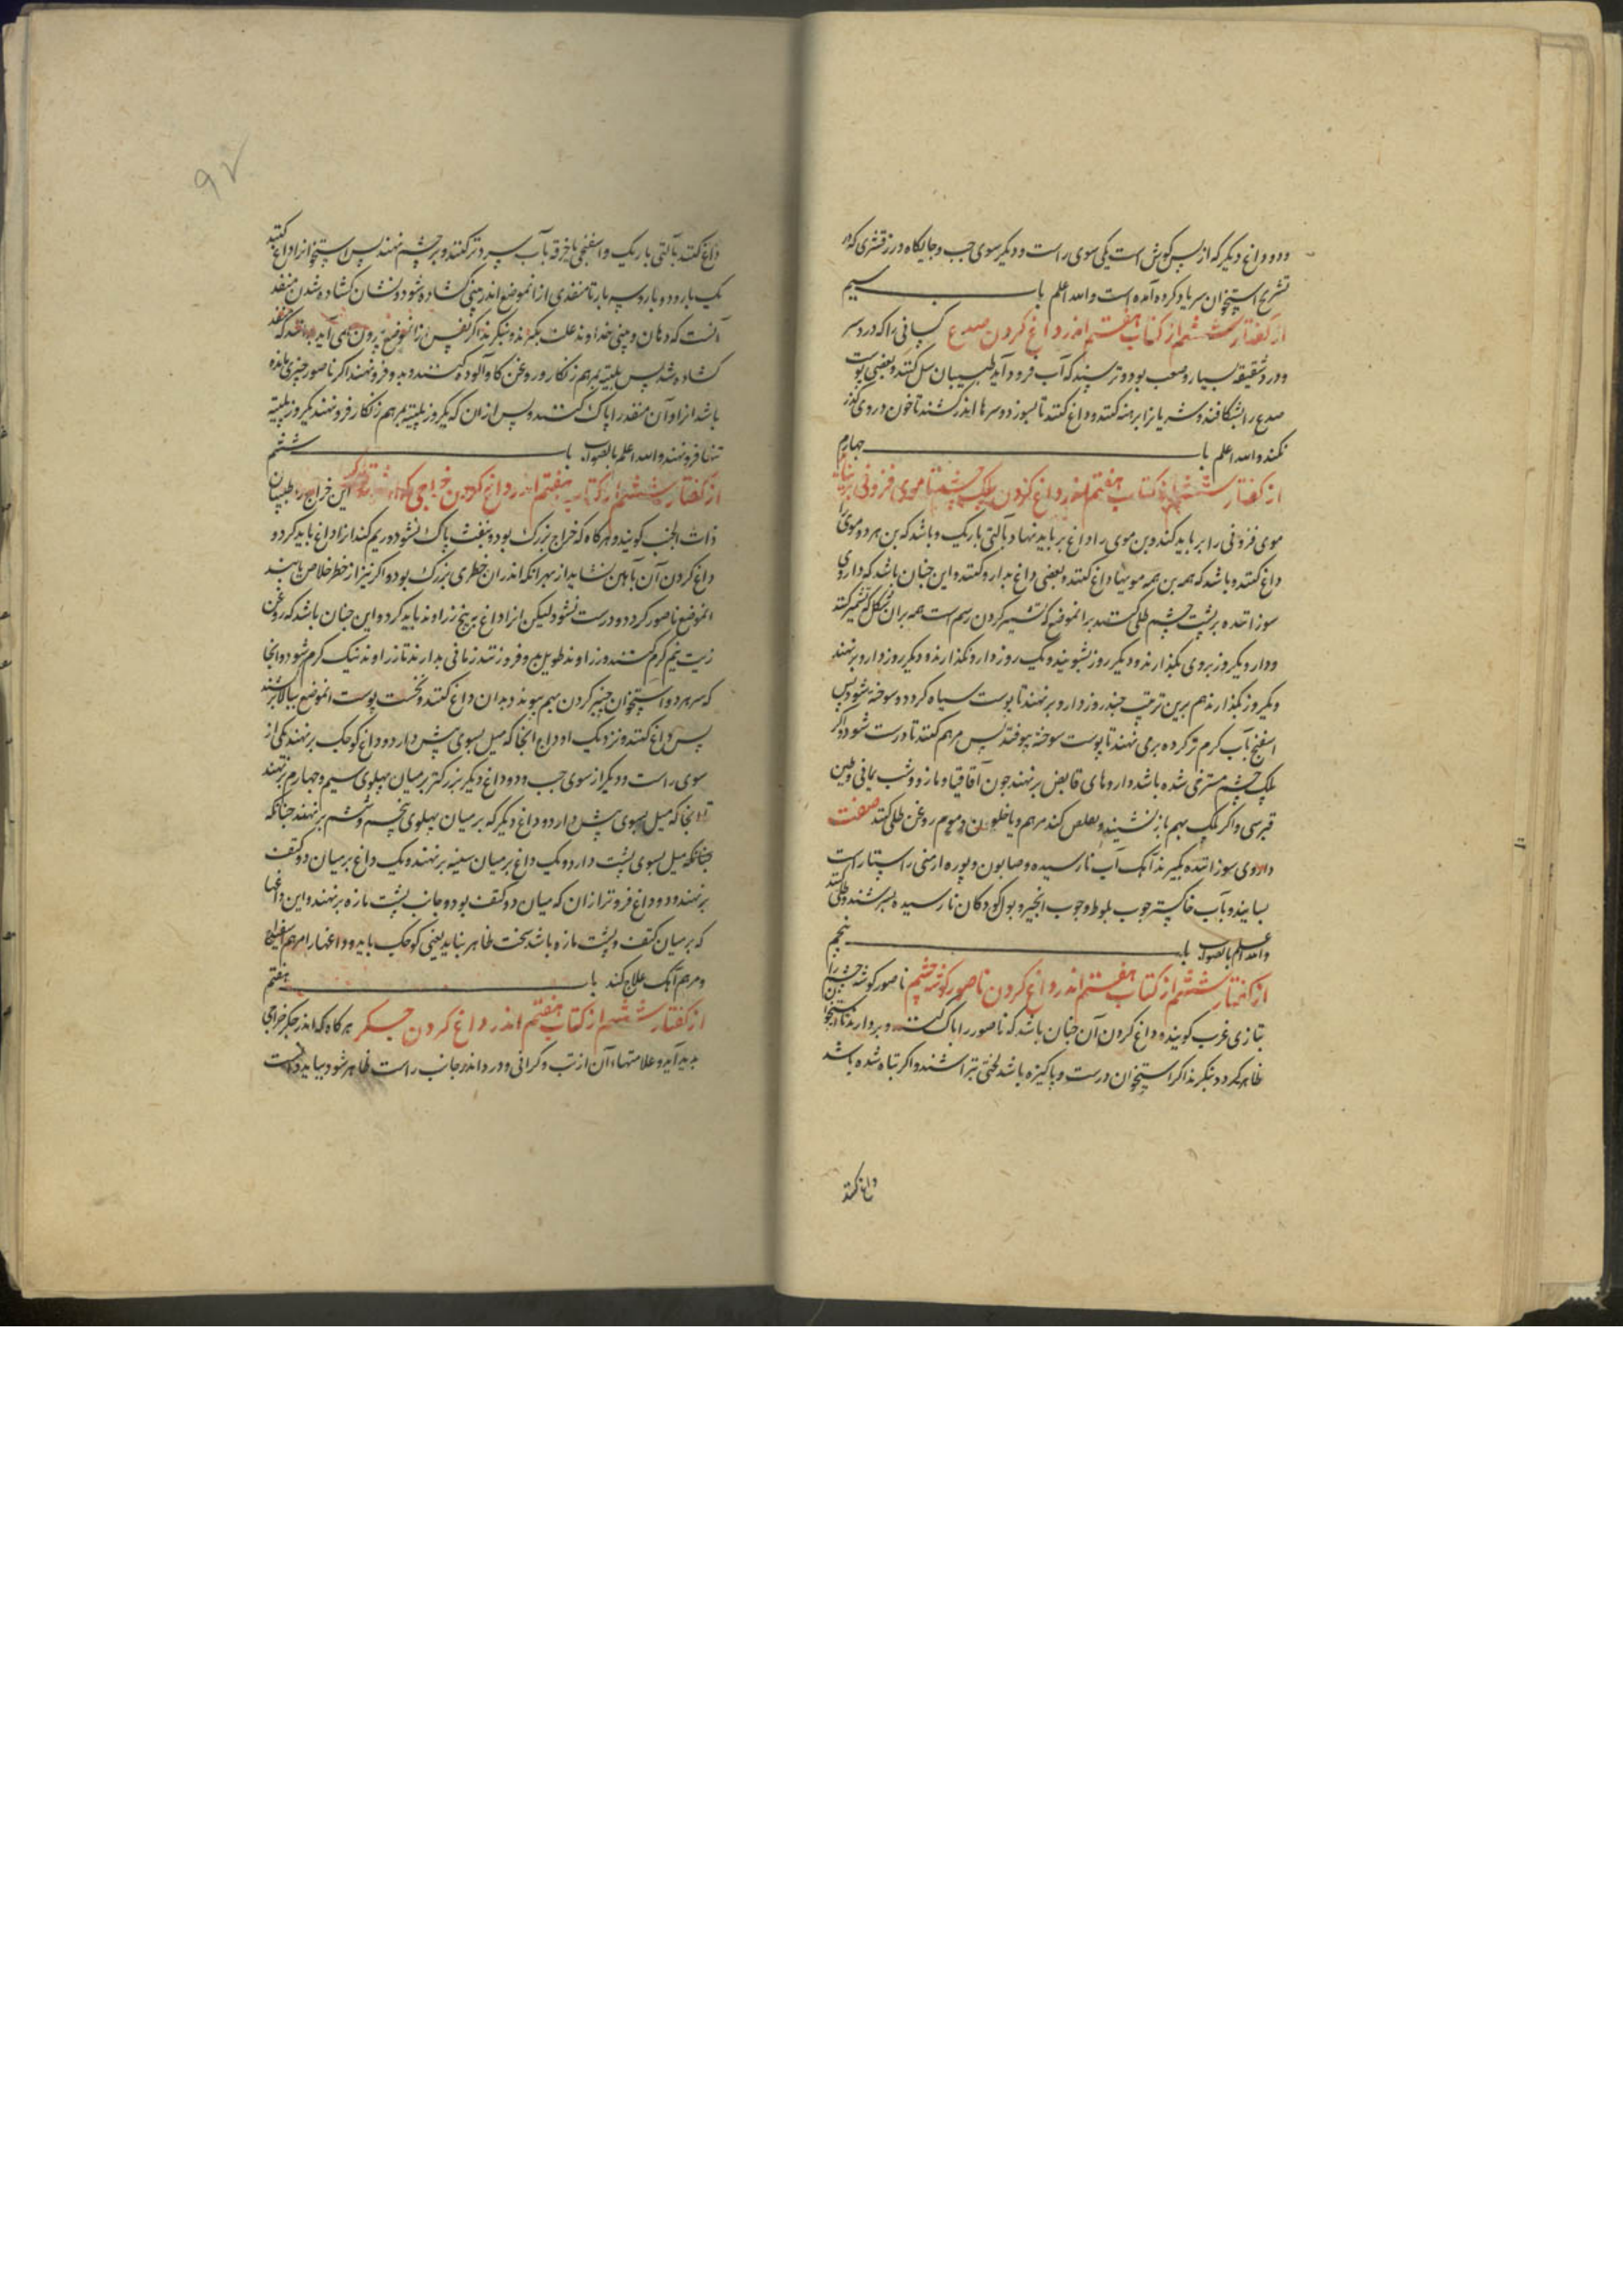 ودو داغ دیکر که از پس کوش است یکی سوی راست و دیکر سوی جب و جایکاه درز قشری که در
تشریح استخوان سر یاد کرده آمده است والله اعلم باب سیم
از کفتار ششم از کتاب هفتم اندر داغ کردن صدع کسانی را که درد سر
و درد شقیقه بسیار و صعب بود و ترسند که آب فرود آید طبیبان سل کنند و بعضی پوست
صدغ را بشکافند و شریانرا برهنه کنند و داغ کنند تا بسوزد و سرها اندر کشند تا خون در وی کذر
نکند والله اعلم باب چهارم
از کفتار ششم از کتاب هفتم اندر داغ کردن پلک چشم تا موی فزونی برنیاید
موی فزونی را بر باید کند و بن موی را داغ بر باید نهاد بآلتی باریک و باشد که بن هر دو موی را
داغ کنند و باشد که همه بن همه مویها داغ کنند و بعضی داغ بدارو کنند و این جنان باشد که داروی
سوزاننده بر پشت چشم طلی کنند بر آنموضع که تشمیر کردن رسم است همه بران شکل که تشمیر کنند
و دارو یکروز بروی بکذارند و دیکر روز بشویند و یک روز دارو نکذارند و دیکر روز دارو برنهند
و یکروز بکذارند هم برین ترتیب جند روز دارو برنهند تا پوست سیاه کردد و سوخته شود پس
اسفنج بآب کرم تر کرده برمی نهند تا پوست سوخته بیوفتد پس مرهم کنند تا درست شود و اکر
پلک چشم مسترخی شده باشد داروهای قابض برنهند جون آقاقیا و مازو و شب یمانی و طین
قبرسی و اکر پلک بهم باز نشیند و تقلص کند مرهم و یاخلیون و موم روغن طلی کنند صفت
داروی سوزاننده بکیرند آهک آب نارسیده و صابون و بوره ارمنی راستا راست
بسایند و بآب خاکستر جوب بلوط و جوب انجیر و بول کودکان نارسیده بسرشند و طلی کنند
والله اعلم بالصواب باب پنجم
از کفتار ششم از کتاب هفتم اندر داغ کردن ناصور کوشه چشم ناصور کوشه چشم را
بتازی غرب کویند و داغ کردن آن جنان باشد که ناصور را پاک کنند و بردارند تا استخوان
ظاهر کردد بنکرند اکر استخوان درست و پاکیزه باشد لختی بتراشند و اکر تباه شده باشد
داغ کنند
داغ کنند بآلتی باریک و اسفنجی یا خرقه بآب سرد تر کنند و بر چشم نهند پس استخوانرا داغ کنند
یک بار و دو بار و سه بار تا منفذی از آنموضع اندر بینی کشاده شود و نشان کشاده شدن منفذ
آنست که دهان و بینی خداوند علت بکیرند و بنکرند اکر نفس از آنموضع بیرون می آید بدانند که منفذ
کشاده شد پس پلیته بمرهم زنکار و روغن کاو آلوده کنند و بدو فرونهند اکر ناصور جیزی مانده
باشد ازاو آن منفذ را پاک کنند و پس از ان که یکروز پلیته بمرهم زنکار فرونهند یکروز پلیته
تنها فرونهند والله اعلم بالصواب باب ششم
از کفتار ششم از کتاب هفتم اندر داغ کردن خراجی که این خراج را طبیبان
ذات الجنب کویند و هرکاه که خراج بزرک بود و بنفث پاک نشود و ریم کند انرا داغ باید کرد و
داغ کردن آن بآهن نشاید از بهر انکه اندر ان خطری بزرک بود و اکر نیز از خطر خلاص یابند
آنموضع ناصور کردد و درست نشود لیکن انرا داغ به بیخ زراوند باید کرد و این جنان باشد که روغن
زیت نیم کرم کنند و زراوند طویل بدو فروزنند زمانی بدارند تا زراوند نیک کرم شود و آنجا
که سر هر دو استخوان جنبر کردن بهم پیوندد بدان داغ کنند و نخست پوست آنموضع ببالا برکشند
پس داغ کنند و نزدیک اوداج آنجا که میل بسوی پیش دارد دو داغ کوجک برنهند یکی از
سوی راست و دیکر از سوی جب و دو داغ دیکر بزرکتر بر میان پهلوی سیم و چهارم برنهند
و آنجا که میل بسوی پیش دارد دو داغ دیکر که بر میان پهلوی پنجم و ششم برنهند جنانکه
جنانکه میل بسوی پشت دارد و یک داغ بر میان سینه برنهند و یک داغ بر میان دو کتف
برنهند و دو داغ فروتر از ان که میان دو کتف بود دو جانب پشت مازه برنهند و این داغها
که بر میان کتف و پشت مازه باشد سخت ظاهر نباید یعنی کوجک باید و داغها را مرهم اسفیداج
و مرهم آهک علاج کنند باب هفتم
از کفتار ششم از کتاب هفتم اندر داغ کردن جکر هرکاه که اندر جکر خراجی
پدید آید و علامتهاء آن از تب و کرانی و درد اندر جانب راست ظاهر شود بباید دانست